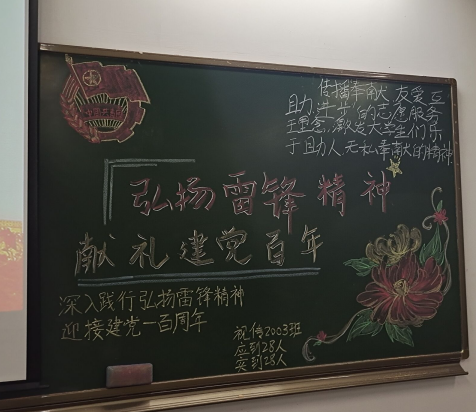 传播奉献 友爱 互
助,进步的志愿服务
理念,激发大学生们乐
于助人,无私奉献的精神.
弘扬雷锋精神
献礼建党百年
深入践行弘扬雷锋精神
迎接建党一百周年
视传2003班
应到28人
实到28人